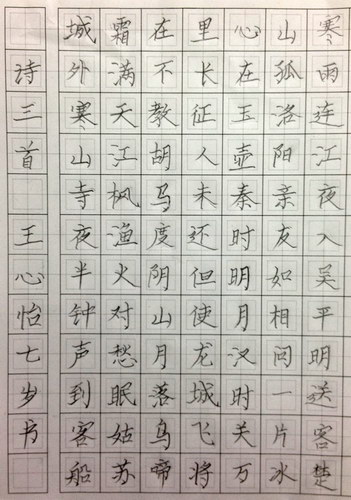 寒雨连江夜入吴平明送客楚
山孤洛阳亲友如相问一片冰
心在玉壶秦时明月汉时关万
里长征人未还但使龙城飞将
在不教胡马度阴山月落乌啼
霜满天江枫渔火对愁眠姑苏
城外寒山寺夜半钟声到客船
诗三首王心怡七岁书